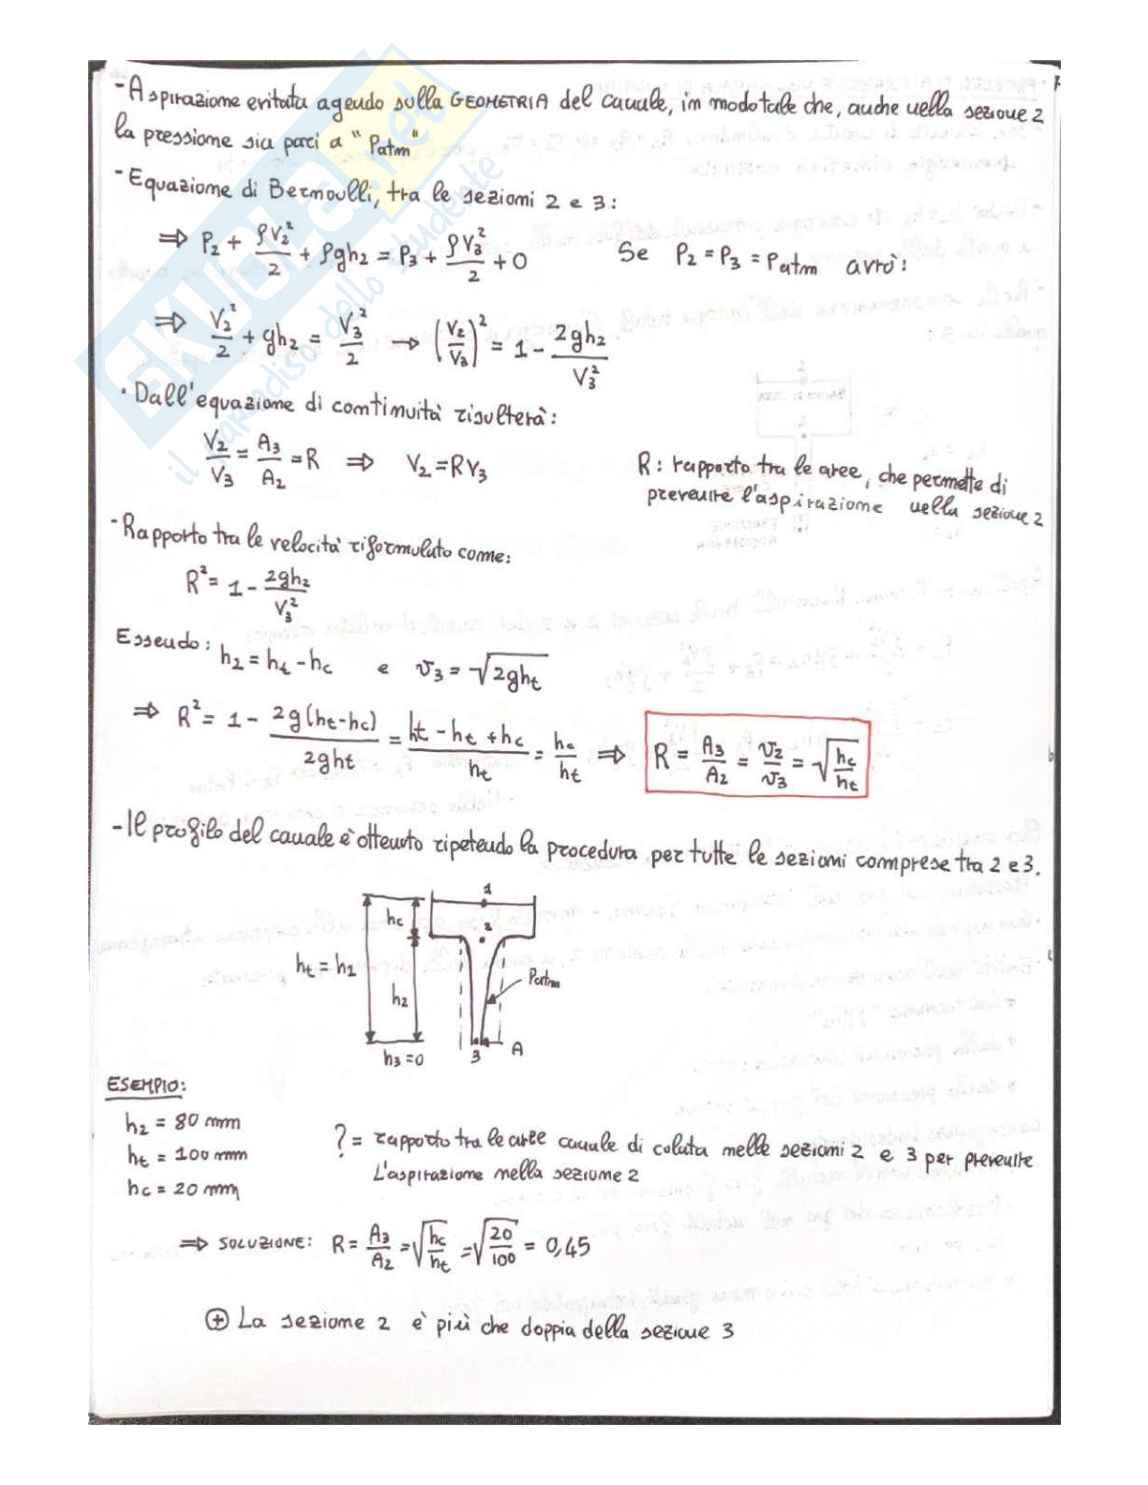 - Aspirazione evitata agendo sulla GEOMETRIA del canale, in modo tale che, anche nella sezione 2
la pressione sia pari a "Patm"
- Equazione di Bernoulli, tra le sezioni 2 e 3:
⇒ P₂ + ρV₂²/2 + ρgh₂ = P₃ + ρV₃²/2 + 0 Se P₂ = P₃ = Patm avrò:
⇒ V₂²/2 + gh₂ = V₃²/2 → (V₂/V₃)² = 1 - 2gh₂/V₃²
· Dall'equazione di continuità risulterà:
V₂/V₃ = A₃/A₂ = R ⇒ V₂ = RV₃
R: rapporto tra le aree, che permette di
prevenire l'aspirazione nella sezione 2
- Rapporto tra le velocità riformulato come:
R² = 1 - 2gh₂/V₃²
Essendo: h₂ = ht - hc e v₃ = √2ght
⇒ R² = 1 - 2g(ht-hc)/2ght = ht - ht + hc/ht = hc/ht ⇒ R = A₃/A₂ = v₂/v₃ = √hc/ht
- Il profilo del canale è ottenuto ripetendo la procedura per tutte le sezioni comprese tra 2 e 3.
1
hc
2
ht = h₂
Patm
h₂
h₃ = 0
3
A
ESEMPIO:
h₂ = 80 mm
ht = 100 mm
hc = 20 mm
? = rapporto tra le aree canale di colata nelle sezioni 2 e 3 per prevenire
l'aspirazione nella sezione 2
⇒ SOLUZIONE: R = A₃/A₂ = √hc/ht = √20/100 = 0,45
⊕ La sezione 2 è più che doppia della sezione 3
SKUOLA.net
il paradiso dello studente